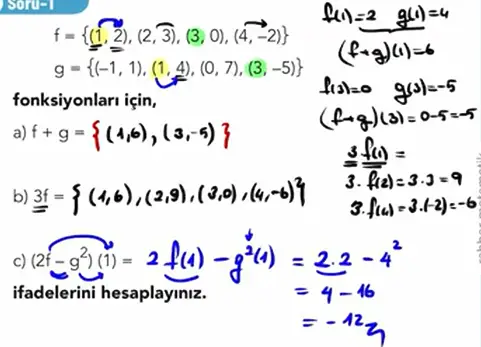 Soru-1
f = {(1, 2), (2, 3), (3, 0), (4, -2)}
g = {(-1, 1), (1, 4), (0, 7), (3, -5)}
fonksiyonları için,
a) f + g = { (1,6), (3,-5) }
b) 3f = { (1,6), (2,9), (3,0), (4,-6) }
c) (2f - g²) (1) = 2 f(1) - g²(1) = 2.2 - 4²
= 4 - 16
= -12
ifadelerini hesaplayınız.
f(1)=2 g(1)=4
(f+g)(1)=6
f(3)=0 g(3)=-5
(f+g)(3)=0-5=-5
3.f(1)=
3.f(2)=3.3=9
3.f(4)=3.(-2)=-6